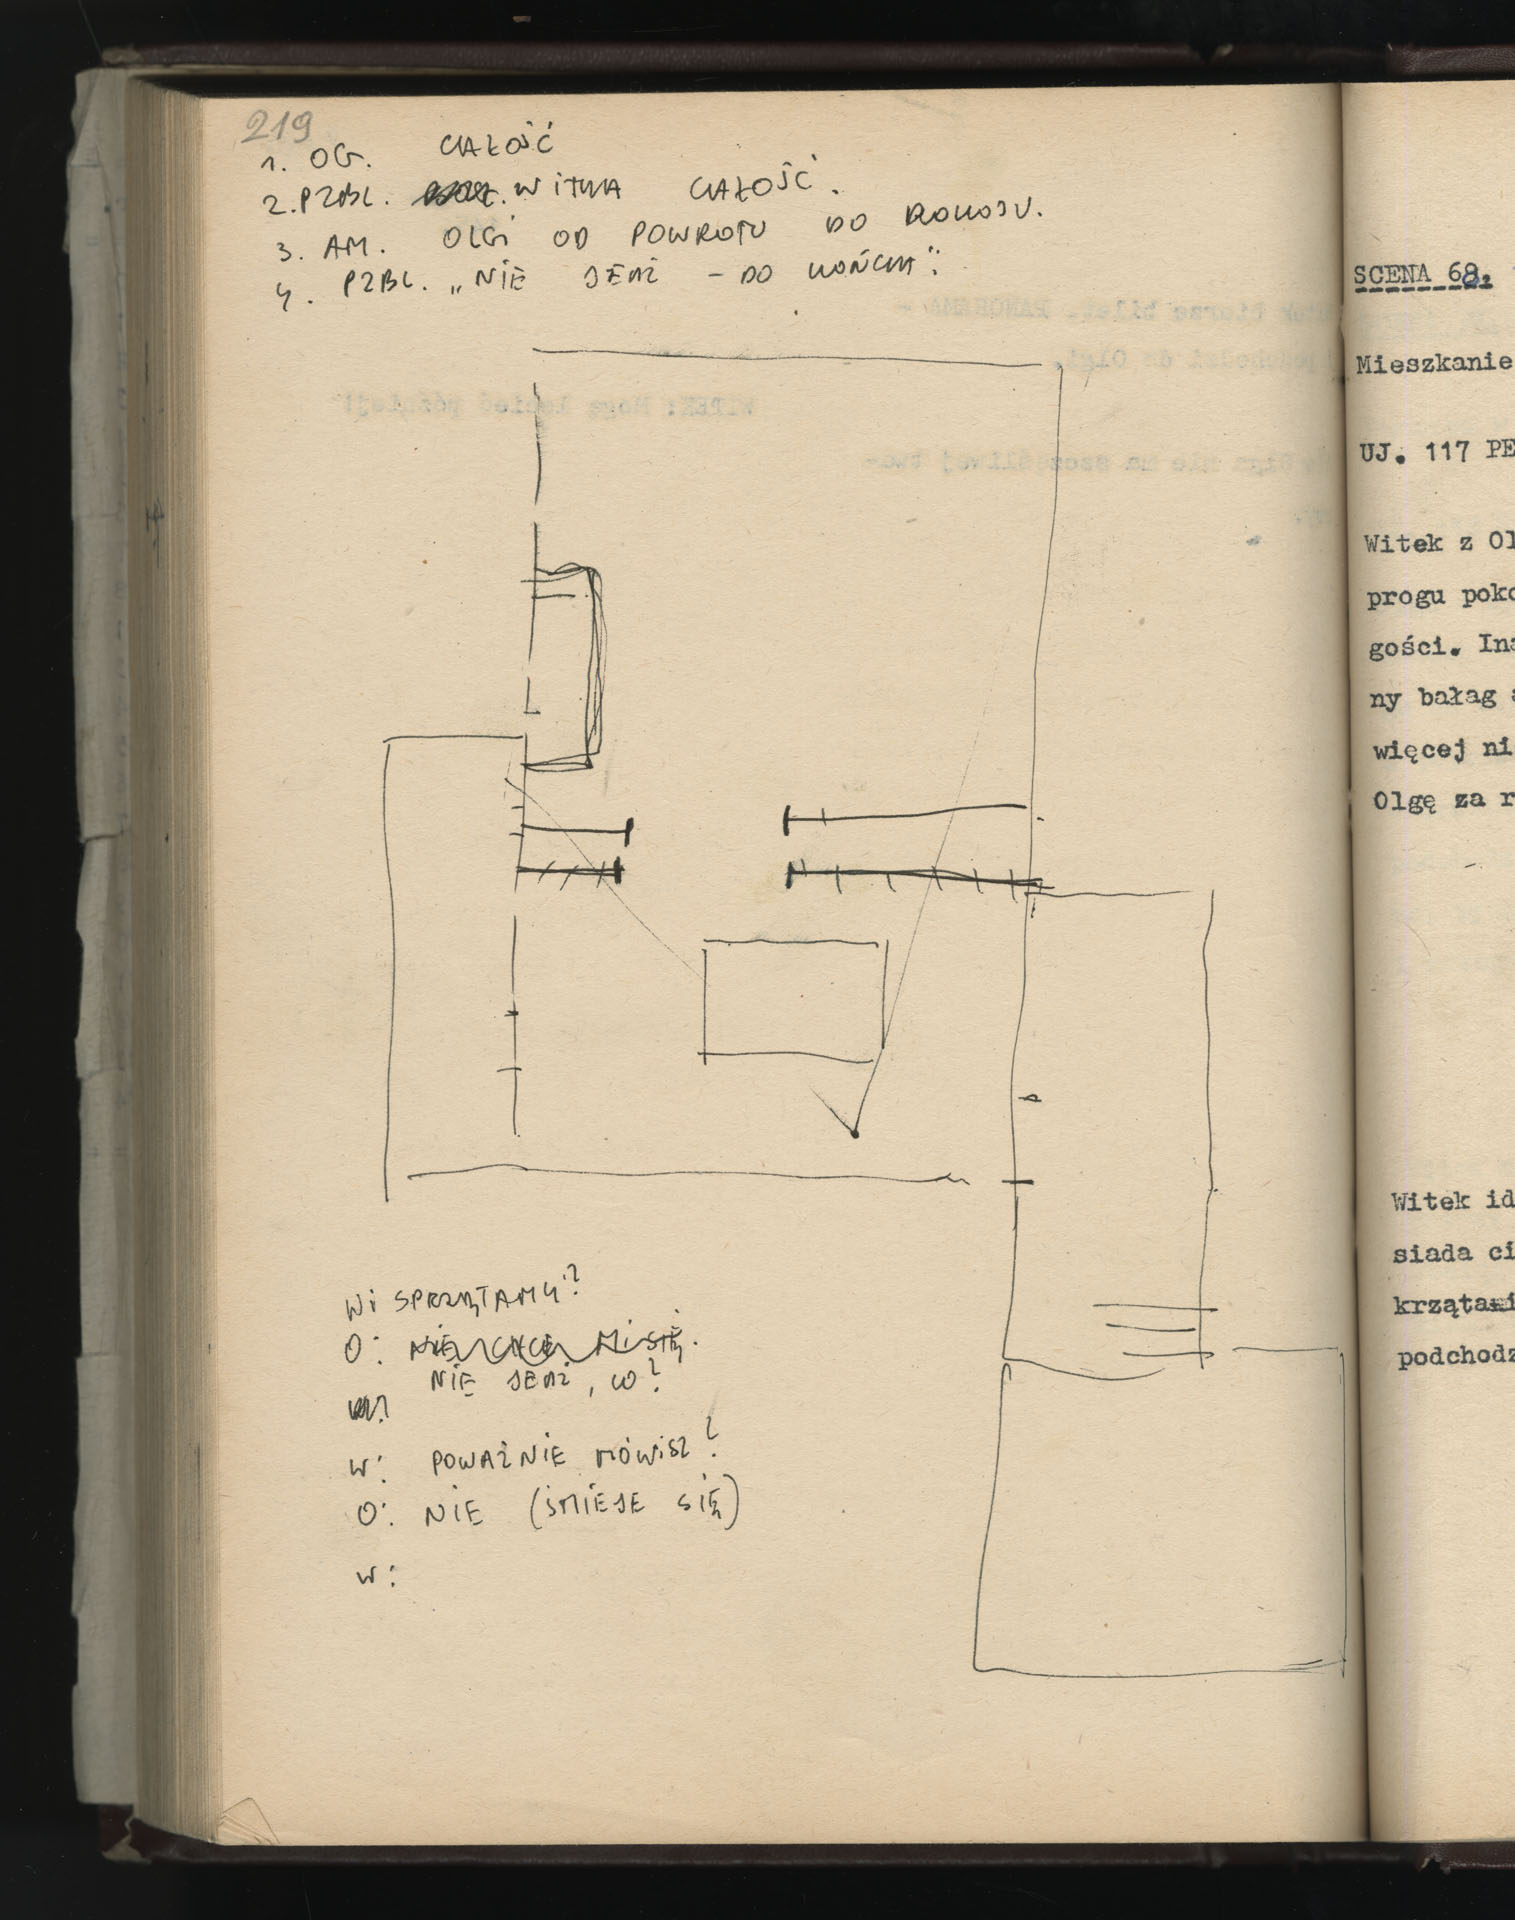 219
1. OG. CAŁOŚĆ
2. PZBL. WITKA CAŁOŚĆ.
3. AM. OLGI OD POWROTU DO POKOJU.
4. PZBL. „NIE JEDŹ – DO KOŃCA":
W: SPRZĄTAMY?
O: NIE CHCE MI SIĘ.
NIE JEDŹ, CO?
W: POWAŻNIE MÓWISZ?
O: NIE (ŚMIEJE SIĘ)
W:
SCENA 68.
Mieszkanie
UJ. 117 PE
Witek z Ol
progu poko
gości. Ina
ny bałag a
więcej ni
Olgę za r
Witek id
siada ci
krząta
podchodz